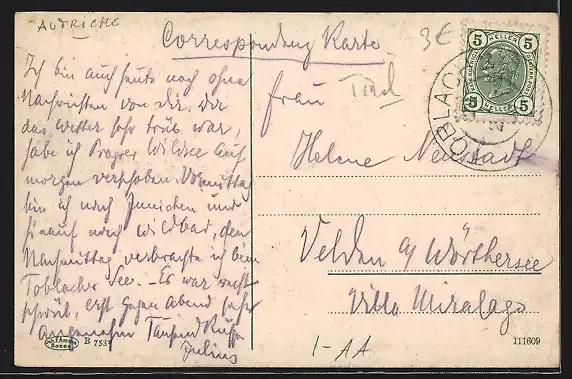 AUTRICHE
Corresponding Karte
3€
5 5
HELLER
5 HELLER 5
TOBLACH
Ich bin auch heute noch ohne
Nachrichten von Dir. Da
das Wetter sehr trüb war,
habe ich Pragser Wildsee auf
morgen verschoben. Vormittag
bin ich nach Innichen und
hinauf nach Wildbad, den
Nachmittag verbrachte ich beim
Toblacher See. – Es war recht
erst gegen Abend sehr
angenehm Tausend Küsse
Julius
Frau
Helene Neustadt
Velden a/ Wörthersee
Villa Miralago
I-AA
B 7537
111609